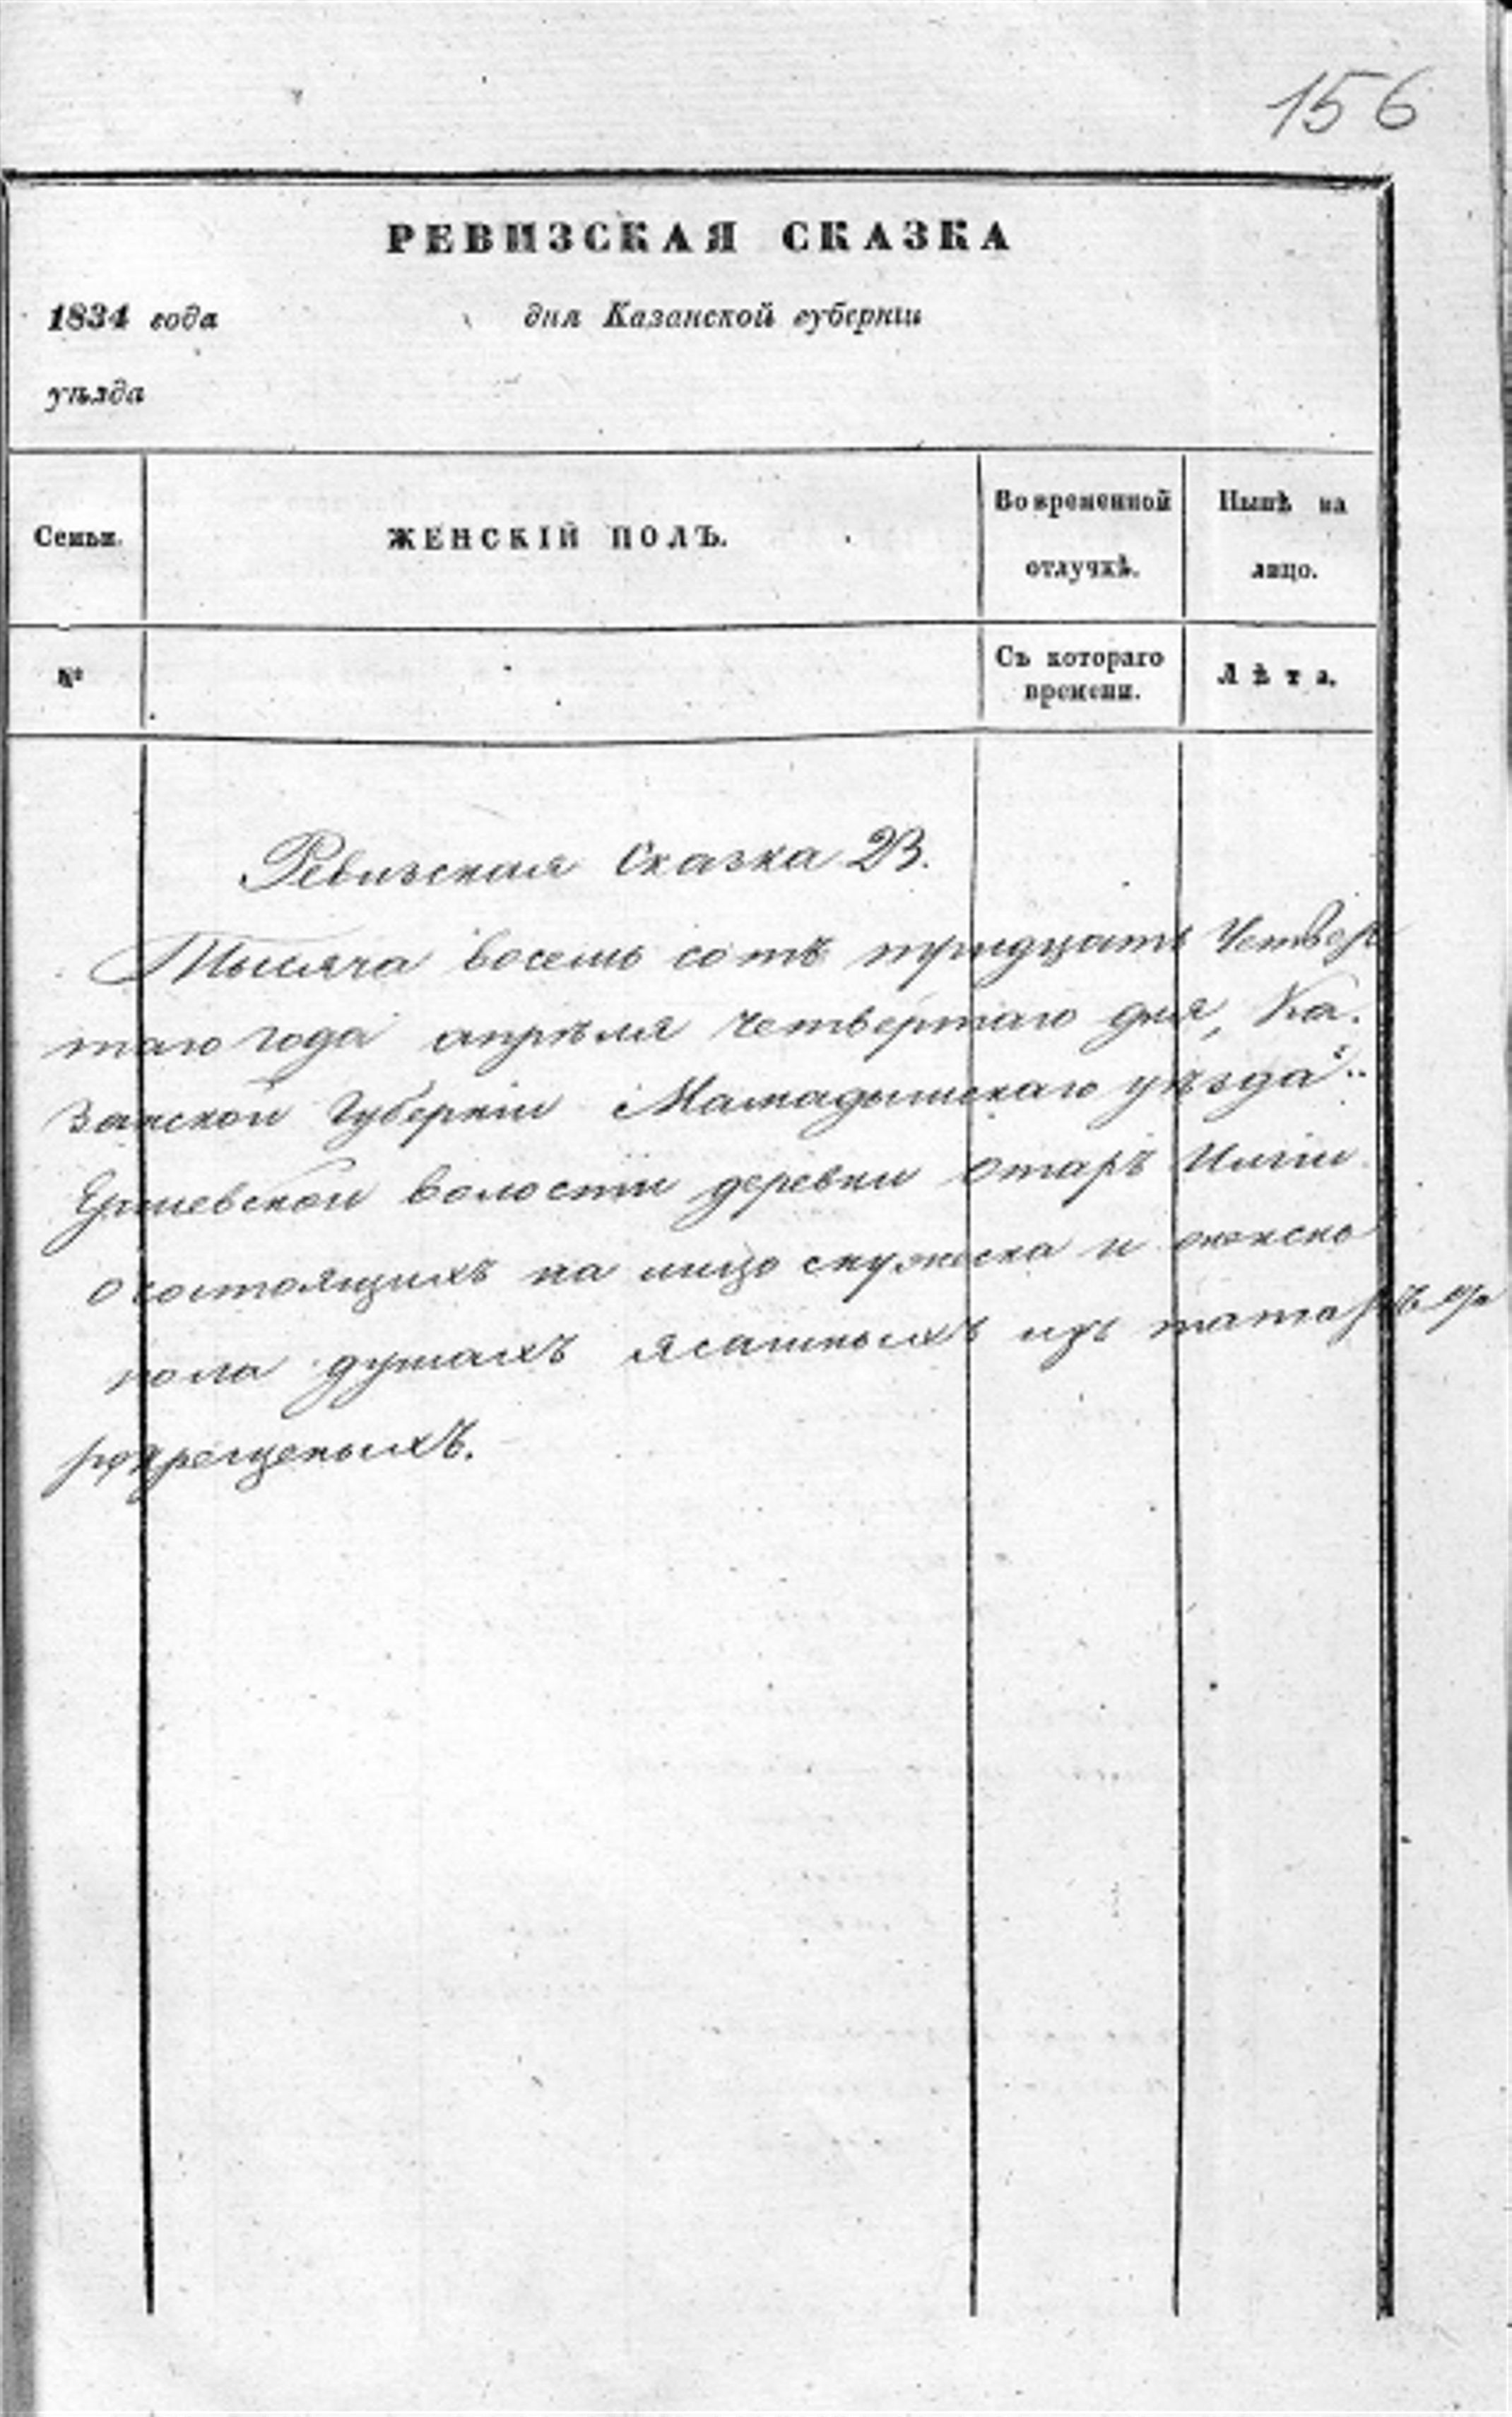 156
РЕВИЗСКАЯ СКАЗКА
1834 года дня Казанской губерніи
уѣзда
Семьи. ЖЕНСКІЙ ПОЛЪ. Во временной отлучкѣ. Нынѣ на лицо.
№ Съ котораго времени. Лѣта.
Ревизская Сказка 23.
Тысяча восемь сотъ тридцать Четвер
таго года апрѣля четвертаго дня, Ка.
занской Губерніи Мамадышскаго уѣзда
волости деревни Отаръ
о состоящихъ на лицо мужеска и женска
пола душахъ ясашныхъ изъ татаръ
крещеныхъ.